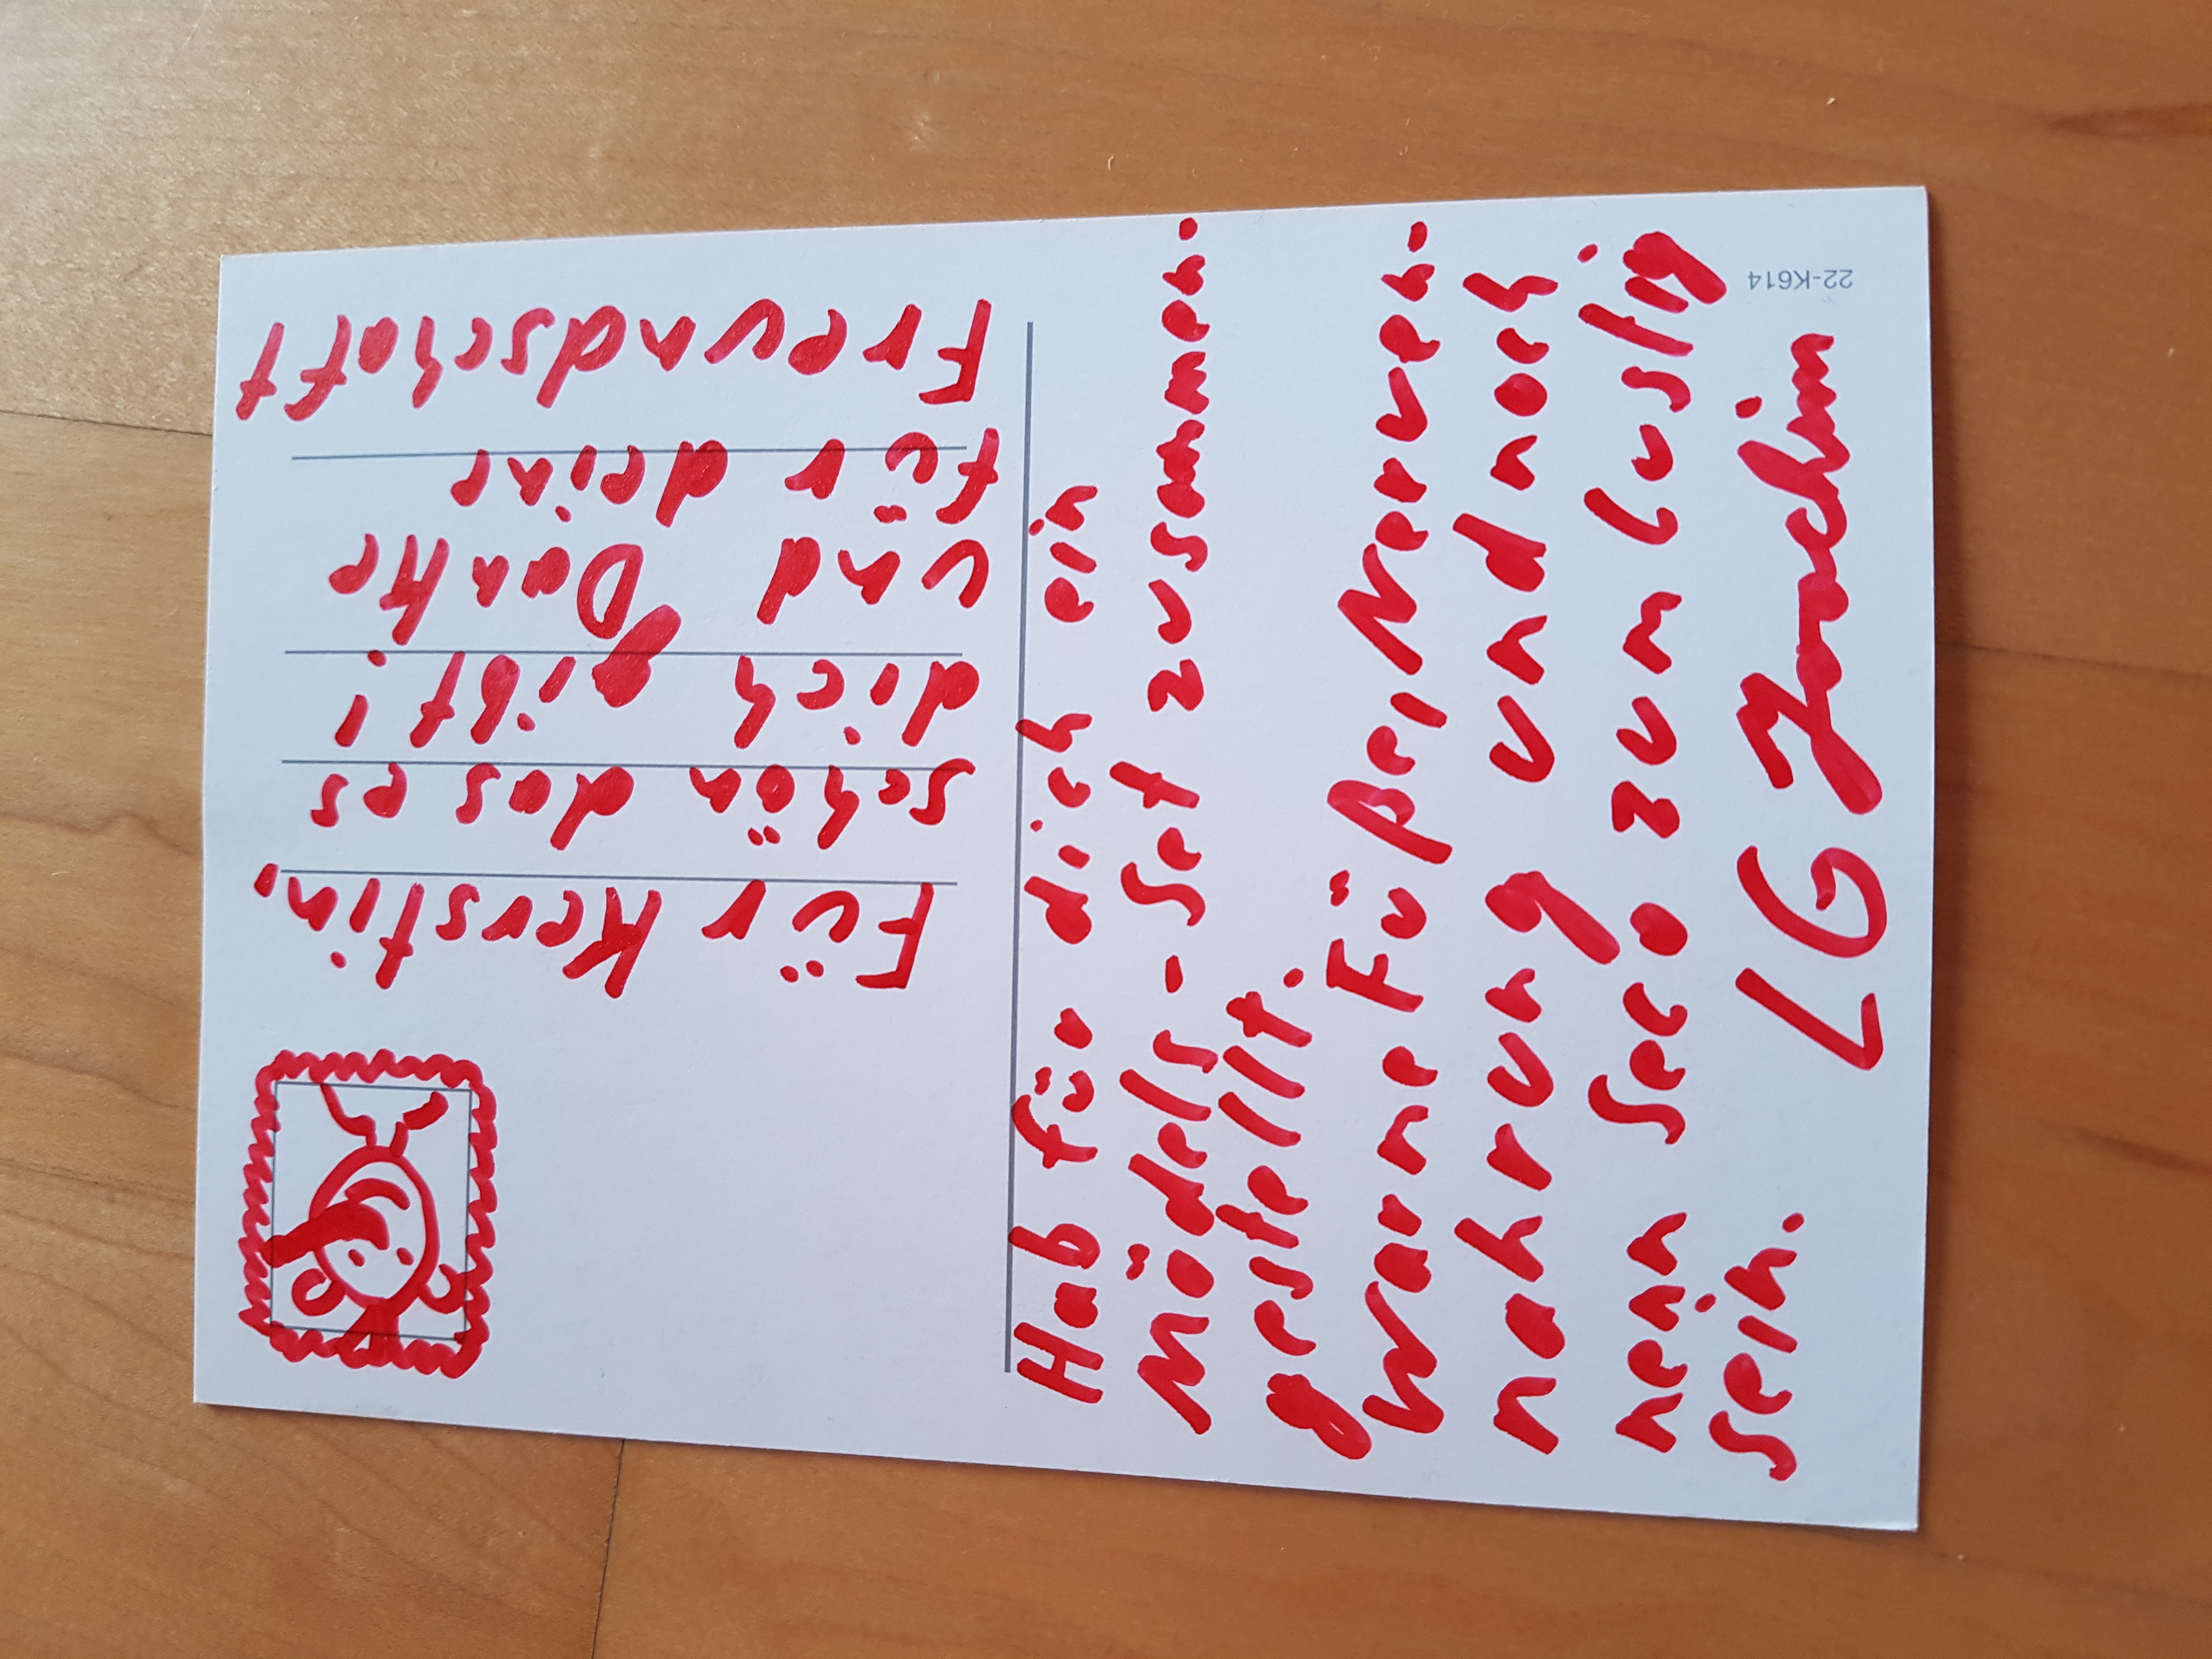 Für Kerstin,
schön das es
dich gibt!
und Danke
für deine
Freundschaft
Hab für dich ein
Mädels-Set zusammen-
gestellt.
Warme Füße, Nerven-
nahrung und noch
nen Seco zum lustig
sein.
LG Joachim
22-K614